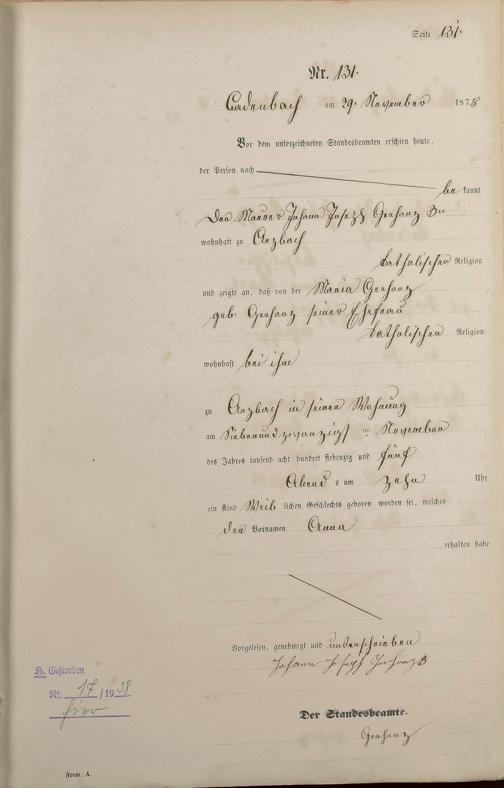 Seite 131.
Nr. 131.
Cadenbach am 29. November 1875
Vor dem unterzeichneten Standesbeamten erschien heute,
der Person nach
be kannt
Der Maurer Johann Joseph Gerharz
wohnhaft zu Arzbach
katholischen Religion
und zeigte an, daß von der Maria Gerharz
geb. Gerharz seiner Ehefrau
katholischen Religion
wohnhaft bei ihm
zu Arzbach in seiner Wohnung
am Siebenundzwanzigst en November
des Jahres tausend acht hundert siebenzig und fünf
Abend s um zehn Uhr
ein Kind Weib lichen Geschlechts geboren worden sei, welches
den Vornamen Anna
erhalten habe
Vorgelesen, genehmigt und unterschrieben
Johann Joseph Gerharz
H. Gestorben
Nr. 17 / 1938
hier
Der Standesbeamte.
Gerharz
Form. A.